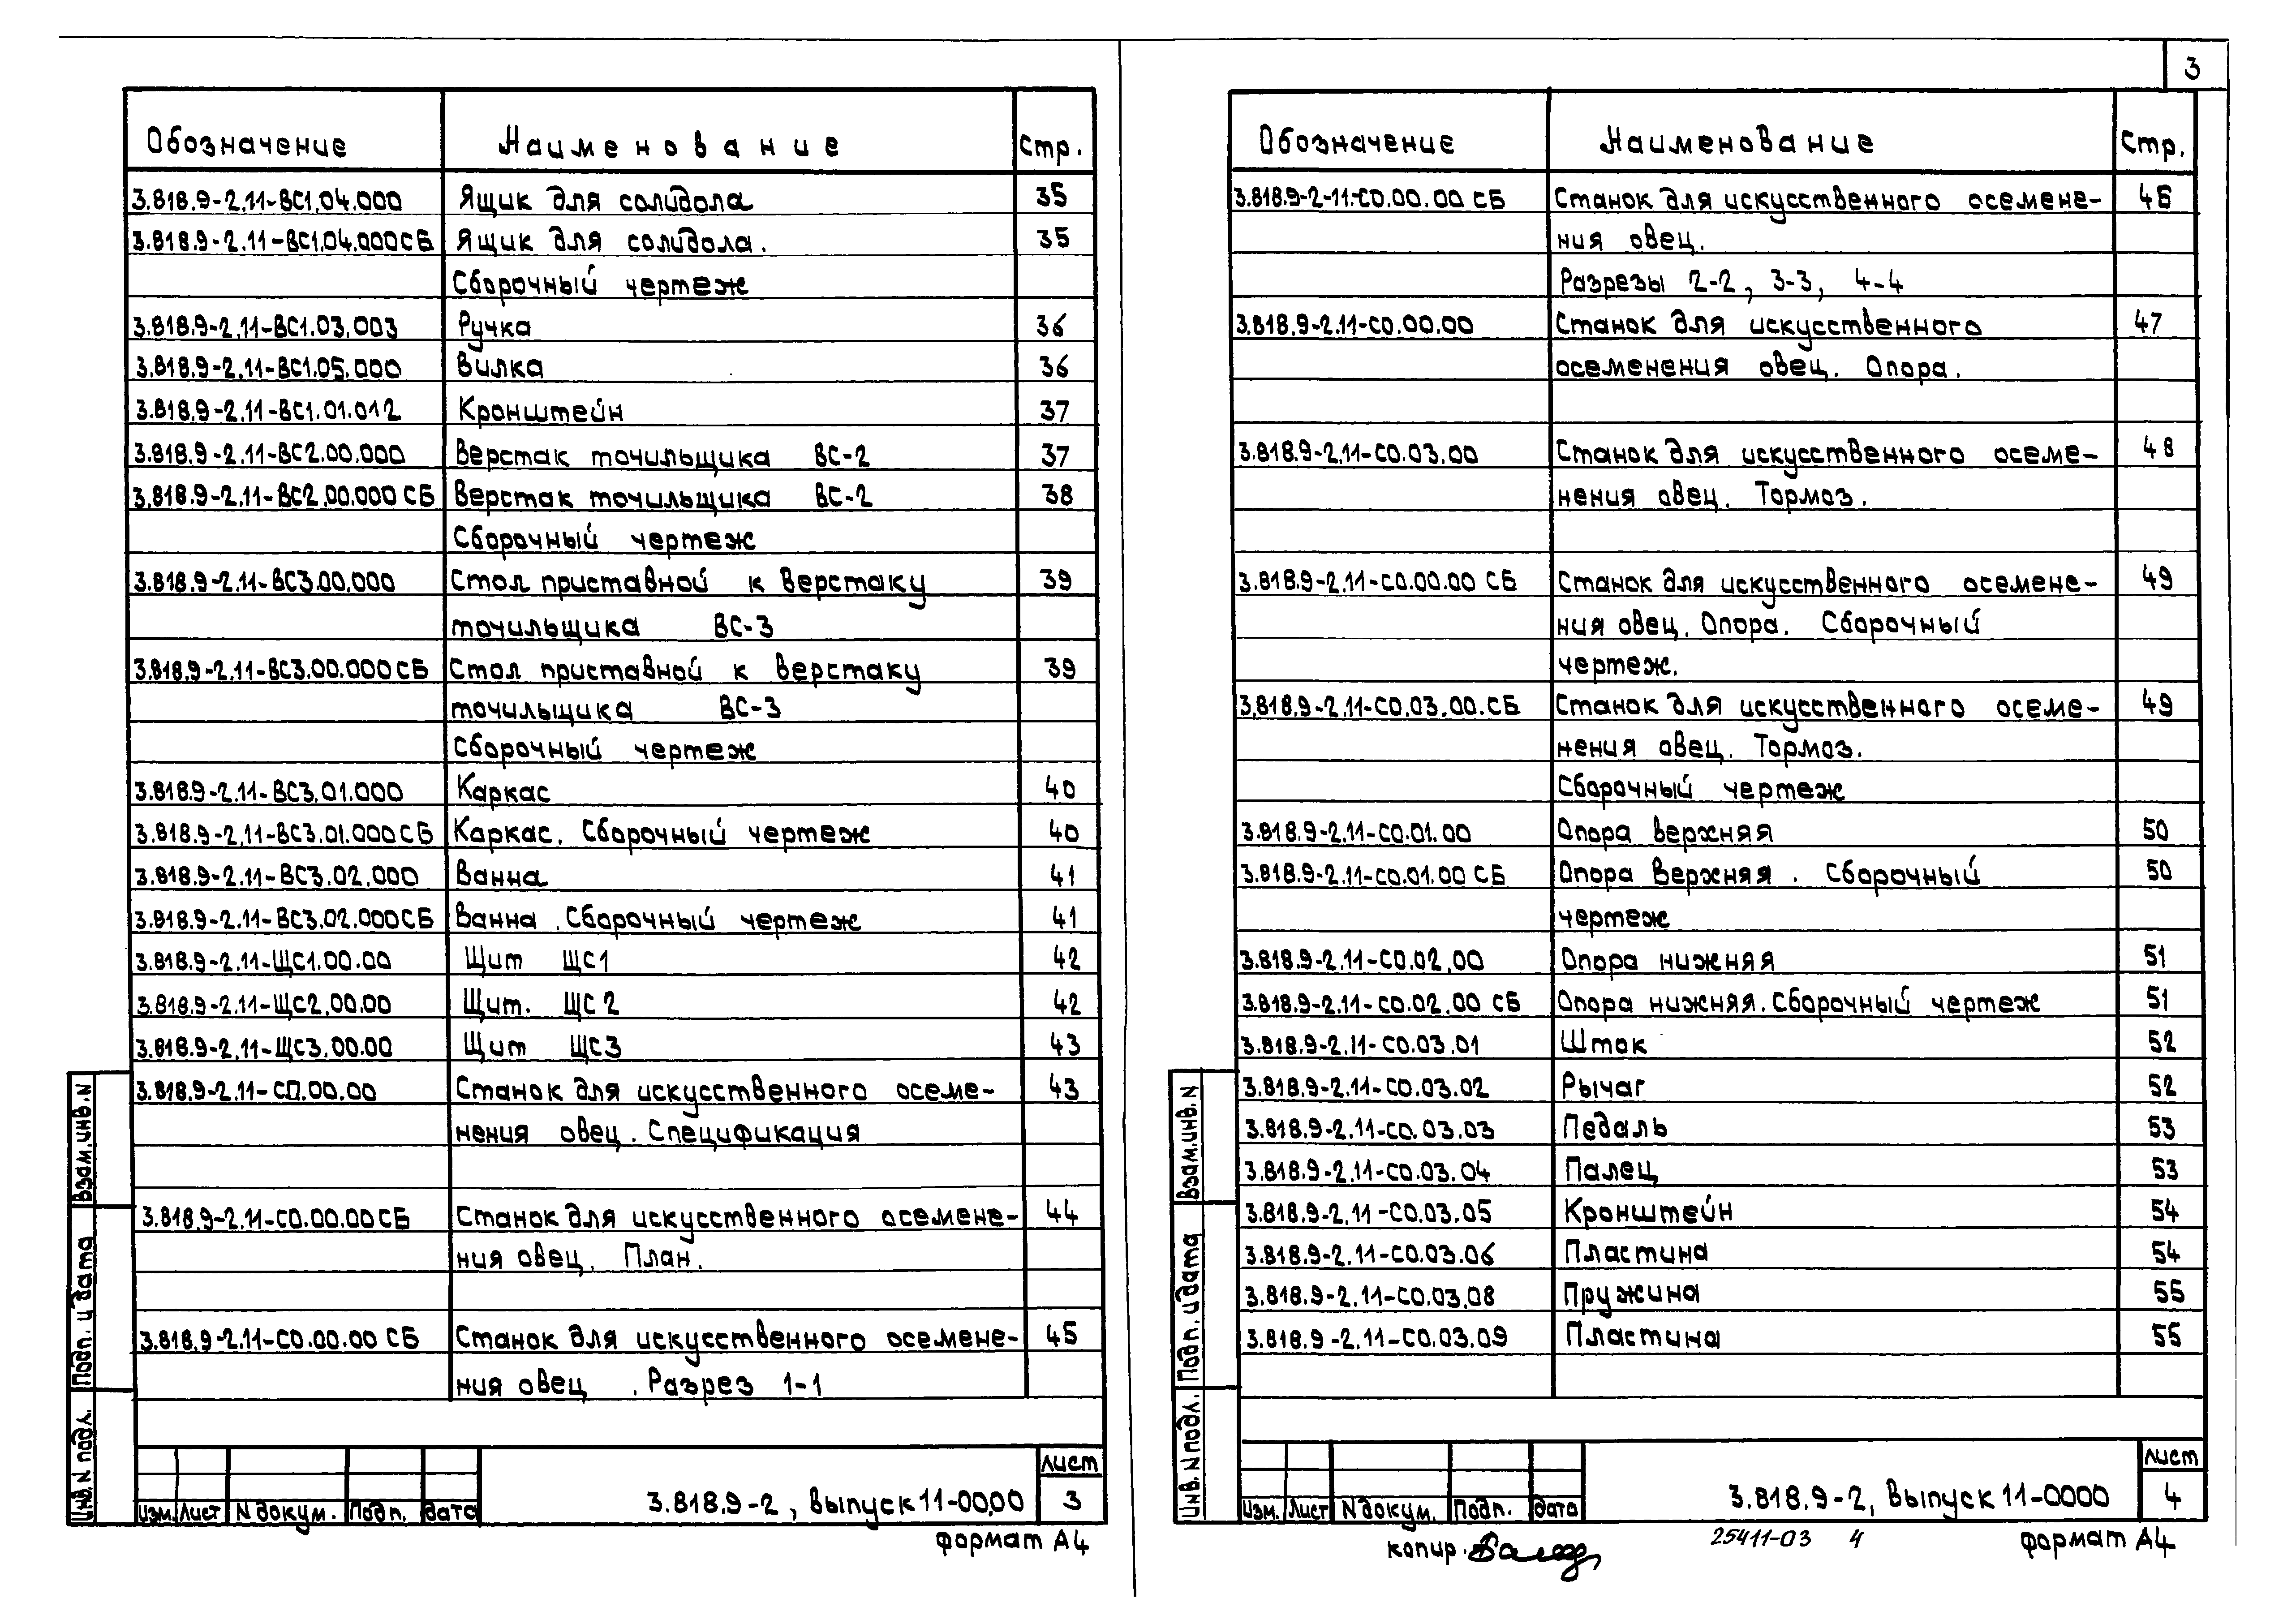 3
Обозначение Наименование Стр.
3.818.9-2.11-ВС1.04.000 Ящик для солидола 35
3.818.9-2.11-ВС1.04.000СБ Ящик для солидола. 35
Сборочный чертеж
3.818.9-2.11-ВС1.03.003 Ручка 36
3.818.9-2.11-ВС1.05.000 Вилка 36
3.818.9-2.11-ВС1.01.012 Кронштейн 37
3.818.9-2.11-ВС2.00.000 Верстак точильщика ВС-2 37
3.818.9-2.11-ВС2.00.000 СБ Верстак точильщика ВС-2 38
Сборочный чертеж
3.818.9-2.11-ВС3.00.000 Стол приставной к верстаку 39
точильщика ВС-3
3.818.9-2.11-ВС3.00.000 СБ Стол приставной к верстаку 39
точильщика ВС-3
Сборочный чертеж
3.818.9-2.11-ВС3.01.000 Каркас 40
3.818.9-2.11-ВС3.01.000 СБ Каркас. Сборочный чертеж 40
3.818.9-2.11-ВС3.02.000 Ванна 41
3.818.9-2.11-ВС3.02.000СБ Ванна. Сборочный чертеж 41
3.818.9-2.11-ЩС1.00.00 Щит ЩС1 42
3.818.9-2.11-ЩС2.00.00 Щит. ЩС2 42
3.818.9-2.11-ЩС3.00.00 Щит ЩС3 43
3.818.9-2.11-СП.00.00 Станок для искусственного осеме- 43
нения овец. Спецификация
3.818.9-2.11-СО.00.00 СБ Станок для искусственного осемене- 44
ния овец. План.
3.818.9-2.11-СО.00.00 СБ Станок для искусственного осемене- 45
ния овец. Разрез 1-1
Взам.инв.N
Подп. и дата
Инв.N подл.
Изм. Лист N докум. Подп. дата
3.818.9-2, Выпуск 11-00.00
лист
3
формат А4
Обозначение Наименование Стр.
3.818.9-2-11-СО.00.00 СБ Станок для искусственного осемене- 46
ния овец.
Разрезы 2-2, 3-3, 4-4
3.818.9-2.11-СО.00.00 Станок для искусственного 47
осеменения овец. Опора.
3.818.9-2.11-СО.03.00 Станок для искусственного осеме- 48
нения овец. Тормоз.
3.818.9-2.11-СО.00.00 СБ Станок для искусственного осемене- 49
ния овец. Опора. Сборочный
чертеж.
3.818.9-2.11-СО.03.00.СБ Станок для искусственного осеме- 49
нения овец. Тормоз.
Сборочный чертеж
3.818.9-2.11-СО.01.00 Опора верхняя 50
3.818.9-2.11-СО.01.00 СБ Опора верхняя. Сборочный 50
чертеж
3.818.9-2.11-СО.02.00 Опора нижняя 51
3.818.9-2.11-СО.02.00 СБ Опора нижняя. Сборочный чертеж 51
3.818.9-2.11-СО.03.01 Шток 52
3.818.9-2.11-СО.03.02 Рычаг 52
3.818.9-2.11-СО.03.03 Педаль 53
3.818.9-2.11-СО.03.04 Палец 53
3.818.9-2.11-СО.03.05 Кронштейн 54
3.818.9-2.11-СО.03.06 Пластина 54
3.818.9-2.11-СО.03.08 Пружина 55
3.818.9-2.11-СО.03.09 Пластина 55
Взам.инв.N
Подп. и дата
Инв.N подл.
Изм. Лист N докум. Подп. дата
3.818.9-2, Выпуск 11-0000
лист
4
копир.
25411-03 4
формат А4